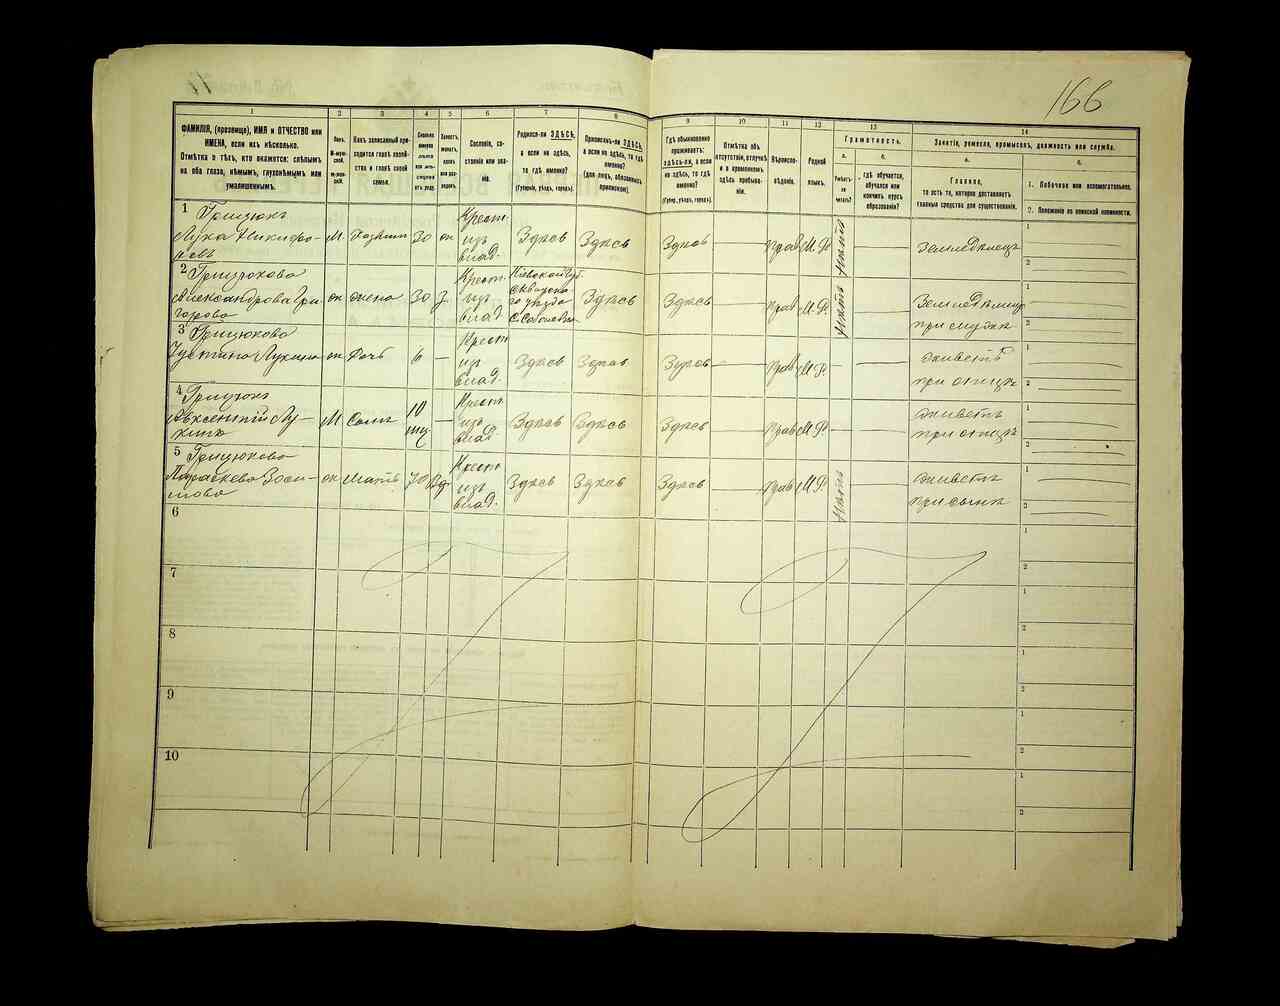 166
1
2
3
4
5
6
7
8
9
10
11
12
13
14
ФАМИЛІЯ, (прозвище), ИМЯ и ОТЧЕСТВО или
ИМЕНА, если ихъ нѣсколько.
Отмѣтка о тѣхъ, кто окажется: слѣпымъ
на оба глаза, нѣмымъ, глухонѣмымъ или
умалишеннымъ.
Полъ.
М-мужской.
Ж-женскій.
Какъ записанный приходится главѣ хозяйства и главѣ своей
семьи.
Сколько
минуло
лѣтъ
или мѣсяцевъ
отъ роду.
Холостъ,
женатъ,
вдовъ
или разведенъ.
Сословіе, состояніе или званіе.
Родился-ли ЗДѢСЬ,
а если не здѣсь,
то гдѣ именно?
(Губернія, уѣздъ, городъ).
Приписанъ-ли ЗДѢСЬ,
а если не здѣсь, то гдѣ
именно?
(для лицъ, обязанныхъ
припискою).
Гдѣ обыкновенно
проживаетъ:
ЗДѢСЬ-ЛИ, а если
не здѣсь, то гдѣ
именно?
(Губерн., уѣздъ, городъ).
Отмѣтка объ
отсутствіи, отлучкѣ
и о временномъ
здѣсь пребываніи.
Вѣроисповѣданіе.
Родной
языкъ.
Грамотность.
а.
Умѣетъ-ли
читать?
б.
гдѣ обучается,
обучался или
кончилъ курсъ
образованія?
Занятіе, ремесло, промыселъ, должность или служба.
а.
Главное,
то есть то, которое доставляетъ
главныя средства для существованія.
б.
1. Побочное или вспомогательное.
2. Положеніе по воинской повинности.
1 Грицюкъ
Лука Никифоровъ М. Хозяинъ 30 ж Крест. изъ влад. Здѣсь Здѣсь Здѣсь Прав. М. Р. нѣтъ Земледѣлецъ
2 Грицюкова
Александрова Григорова ж жена 30 з. Крест. изъ влад. Кіевской Губ. Сквирскаго уѣзда Здѣсь Здѣсь Прав. М. Р. нѣтъ
3 Грицюкова
Устина Лукина ж Дочь 6 — Крест. изъ влад. Здѣсь Здѣсь Здѣсь Прав. М. Р. живетъ при отцѣ
4 Грицюкъ
Авксентій Лукинъ М Сынъ 10 мц. — Крест. изъ влад. Здѣсь Здѣсь Здѣсь Прав. М. Р. живетъ при отцѣ
5 Грицюкова
Параскева Зосимова ж мать 70 вд. Крест. изъ влад. Здѣсь Здѣсь Здѣсь Прав. М. Р. нѣтъ живетъ при сынѣ
6
7
8
9
10